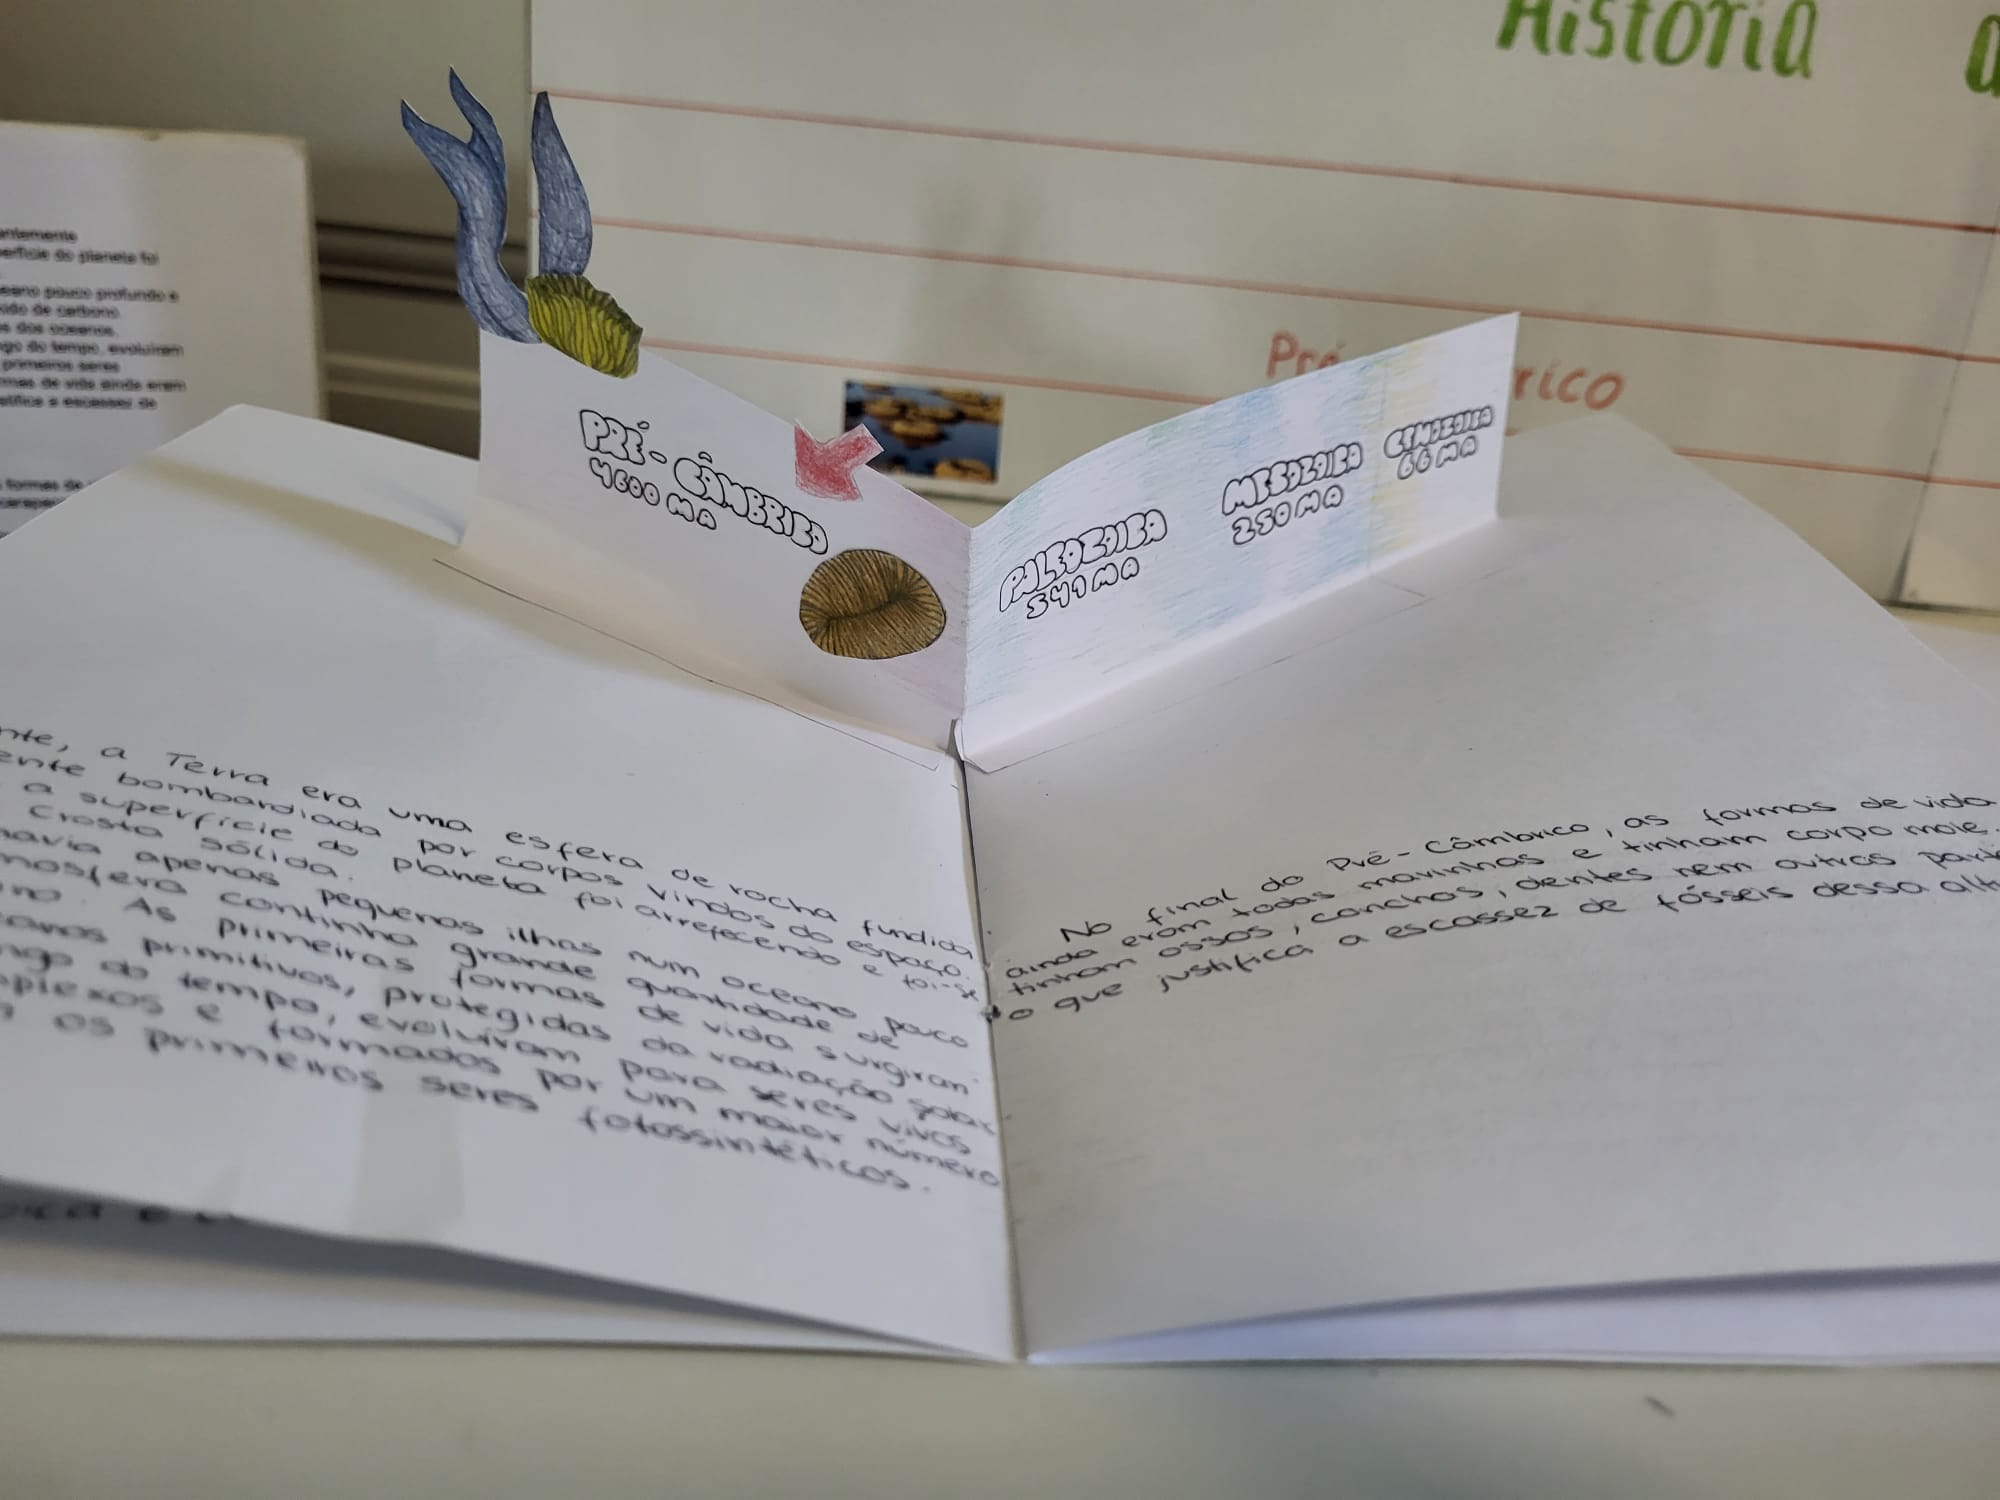 História
antemente
perfície do planeta foi
oceano pouco profundo e
óxido de carbono.
s dos oceanos,
ngo do tempo, evoluíram
primeiros seres
rmas de vida ainda eram
stifica a escassez de
formas de
Pré rico
PRÉ-CÂMBRICO
4600 MA
PALEOZOICA
541 MA
MESOZOICA
250 MA
CENOZOICA
66 MA
nte, a Terra era uma esfera de rocha fundida
ente bombardiada por corpos vindos do espaço.
a superfície do planeta foi arrefecendo e foi-se
Crosta sólida.
havia apenas pequenas ilhas num oceano pouco
mosfera continha grande quantidade de
ono. As primeiras formas de vida surgiram
eanos primitivos, protegidas da radiação solar
ngo do tempo, evoluíram para seres vivos
plexos e formados por um maior número
os primeiros seres fotossintéticos.
No final do Pré-Câmbrico, as formas de vida
ainda eram todas marinhas e tinham corpo mole.
tinham ossos, conchas, dentes nem outras part
o que justifica a escassez de fósseis dessa alt